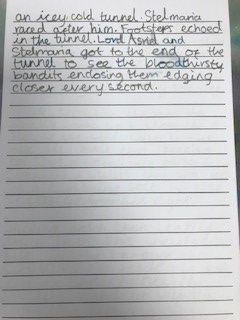 an icey cold tunnel. Stelmaria
raced after him. Footsteps echoed
in the tunnel. Lord Asriel and
Stelmaria got to the end of the
tunnel to see the bloodthirsty
bandits enclosing them edging
closer every second.